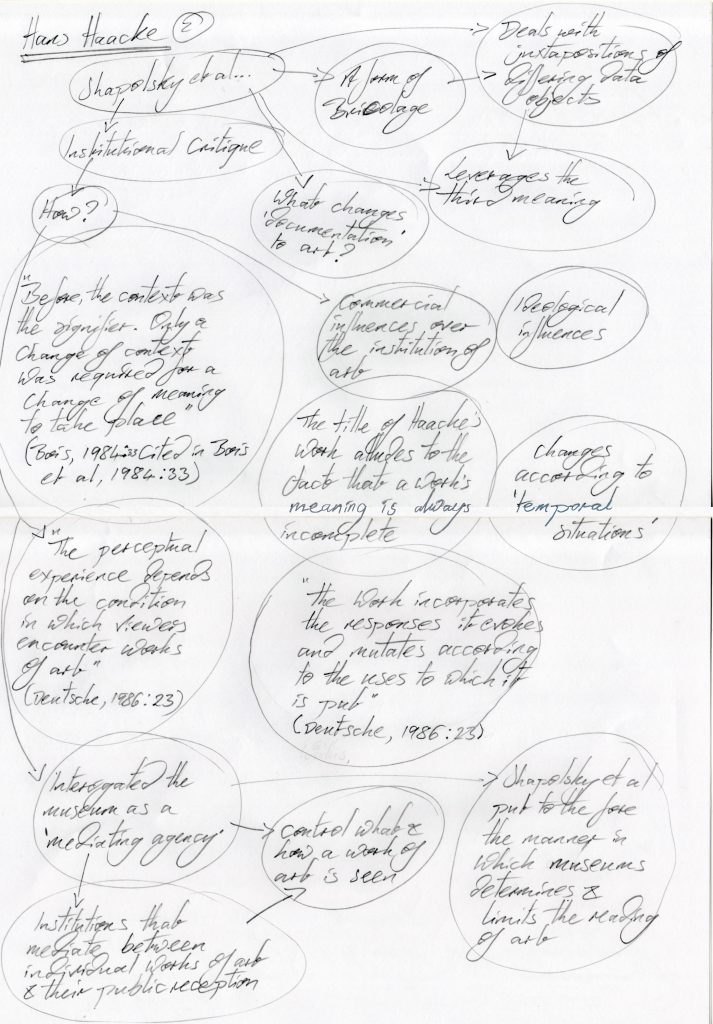 Hans Haacke 2
Shapolsky et al...
A form of
Bricolage
Deals with
juxtapositions of
differing data
objects
Institutional Critique
Leverages the
third meaning
How?
What changes
'documentation'
to art?
"Before, the context was
the signifier. Only a
change of context
was required for a
change of meaning
to take place"
(Bois, 1984: Cited in Bois
et al, 1984:33)
Commercial
influences over
the institution of
art
Ideological
influences
The title of Haacke's
work alludes to the
fact that a work's
meaning is always
incomplete
changes
according to
'temporal
situations'
"The perceptual
experience depends
on the condition
in which viewers
encounter works
of art"
(Deutsche, 1986:23)
"the work incorporates
the responses it evokes
and mutates according
to the uses to which it
is put"
(Deutsche, 1986:23)
Interogated the
museum as a
'mediating agency'
control what &
how a work of
art is seen
Shapolsky et al
put to the fore
the manner in
which museums
determines &
limits the reading
of art
Institutions that
mediate between
individual works of art
& their public reception